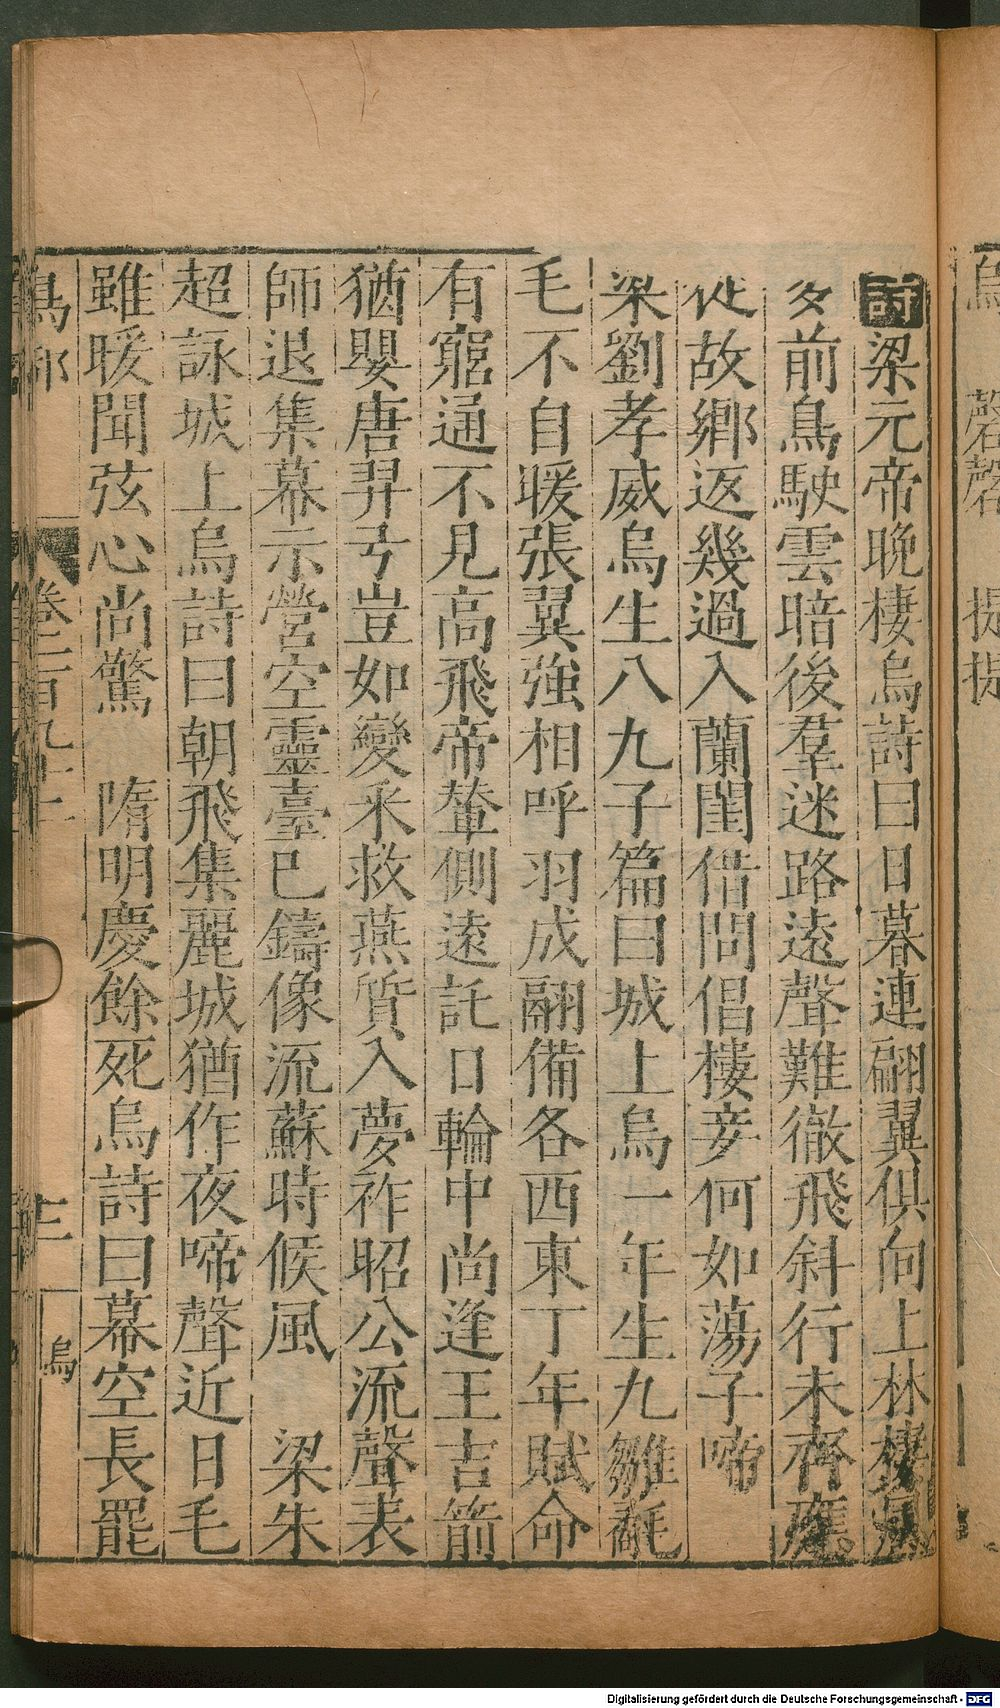 詩梁元帝晚棲烏詩曰日暮連翩翼俱向上林棲
多前鳥駛雲暗後羣迷路遠聲難徹飛斜行未齊應
從故鄉返幾過入蘭閨借問倡樓妾何如蕩子啼
梁劉孝威烏生八九子篇曰城上烏一年生九雛毻
毛不自暖張翼強相呼羽成翮備各西東丁年賦命
有窮通不見高飛帝輦側遠託日輪中尚逢王吉箭
猶嬰唐羿弓豈如變釆救燕質入夢祚昭公流聲表
師退集幕示營空靈臺巳鑄像流蘇時候風 梁朱
超詠城上烏詩曰朝飛集麗城猶作夜啼聲近日毛
雖暖聞弦心尚驚 隋明慶餘死烏詩曰幕空長罷
卷三百九十二
三
烏
烏
磬磬
提提
Digitalisierung gefördert durch die Deutsche Forschungsgemeinschaft - DFG